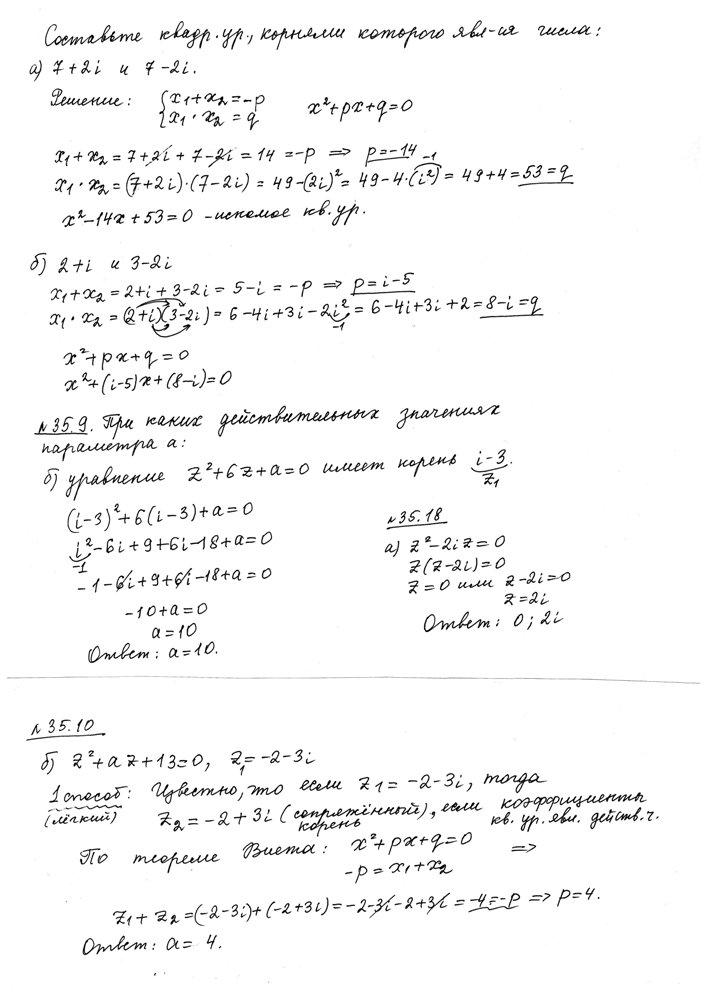 Составьте квадр. ур., корнями которого явл-ия числа:
а) 7+2i и 7-2i.
Решение: {x₁+x₂=-p
x₁·x₂=q
x²+px+q=0
x₁+x₂=7+2i+7-2i=14=-p ⇒ p=-14
x₁·x₂=(7+2i)·(7-2i)=49-(2i)²=49-4·(i²)=49+4=53=q
-1
x²-14x+53=0 - искомое кв. ур.
б) 2+i и 3-2i
x₁+x₂=2+i+3-2i=5-i=-p ⇒ p=i-5
x₁·x₂=(2+i)(3-2i)=6-4i+3i-2i²=6-4i+3i+2=8-i=q
-1
x²+px+q=0
x²+(i-5)x+(8-i)=0
№35.9. При каких действительных значениях
параметра а:
б) уравнение z²+6z+a=0 имеет корень i-3.
z₁
(i-3)²+6(i-3)+a=0
i²-6i+9+6i-18+a=0
-1
-1-6i+9+6i-18+a=0
-10+a=0
a=10
Ответ: a=10.
№35.18
а) z²-2iz=0
z(z-2i)=0
z=0 или z-2i=0
z=2i
Ответ: 0; 2i
№35.10
б) z²+az+13=0, z₁=-2-3i
1 способ: Известно, что если z₁=-2-3i, тогда
(лёгкий) z₂=-2+3i (сопряжённый), если коэффициенты
корень кв. ур. явл. действ. ч.
По теореме Виета: x²+px+q=0 ⇒
-p=x₁+x₂
z₁+z₂=(-2-3i)+(-2+3i)=-2-3i-2+3i=-4=-p ⇒ p=4.
Ответ: a=4.